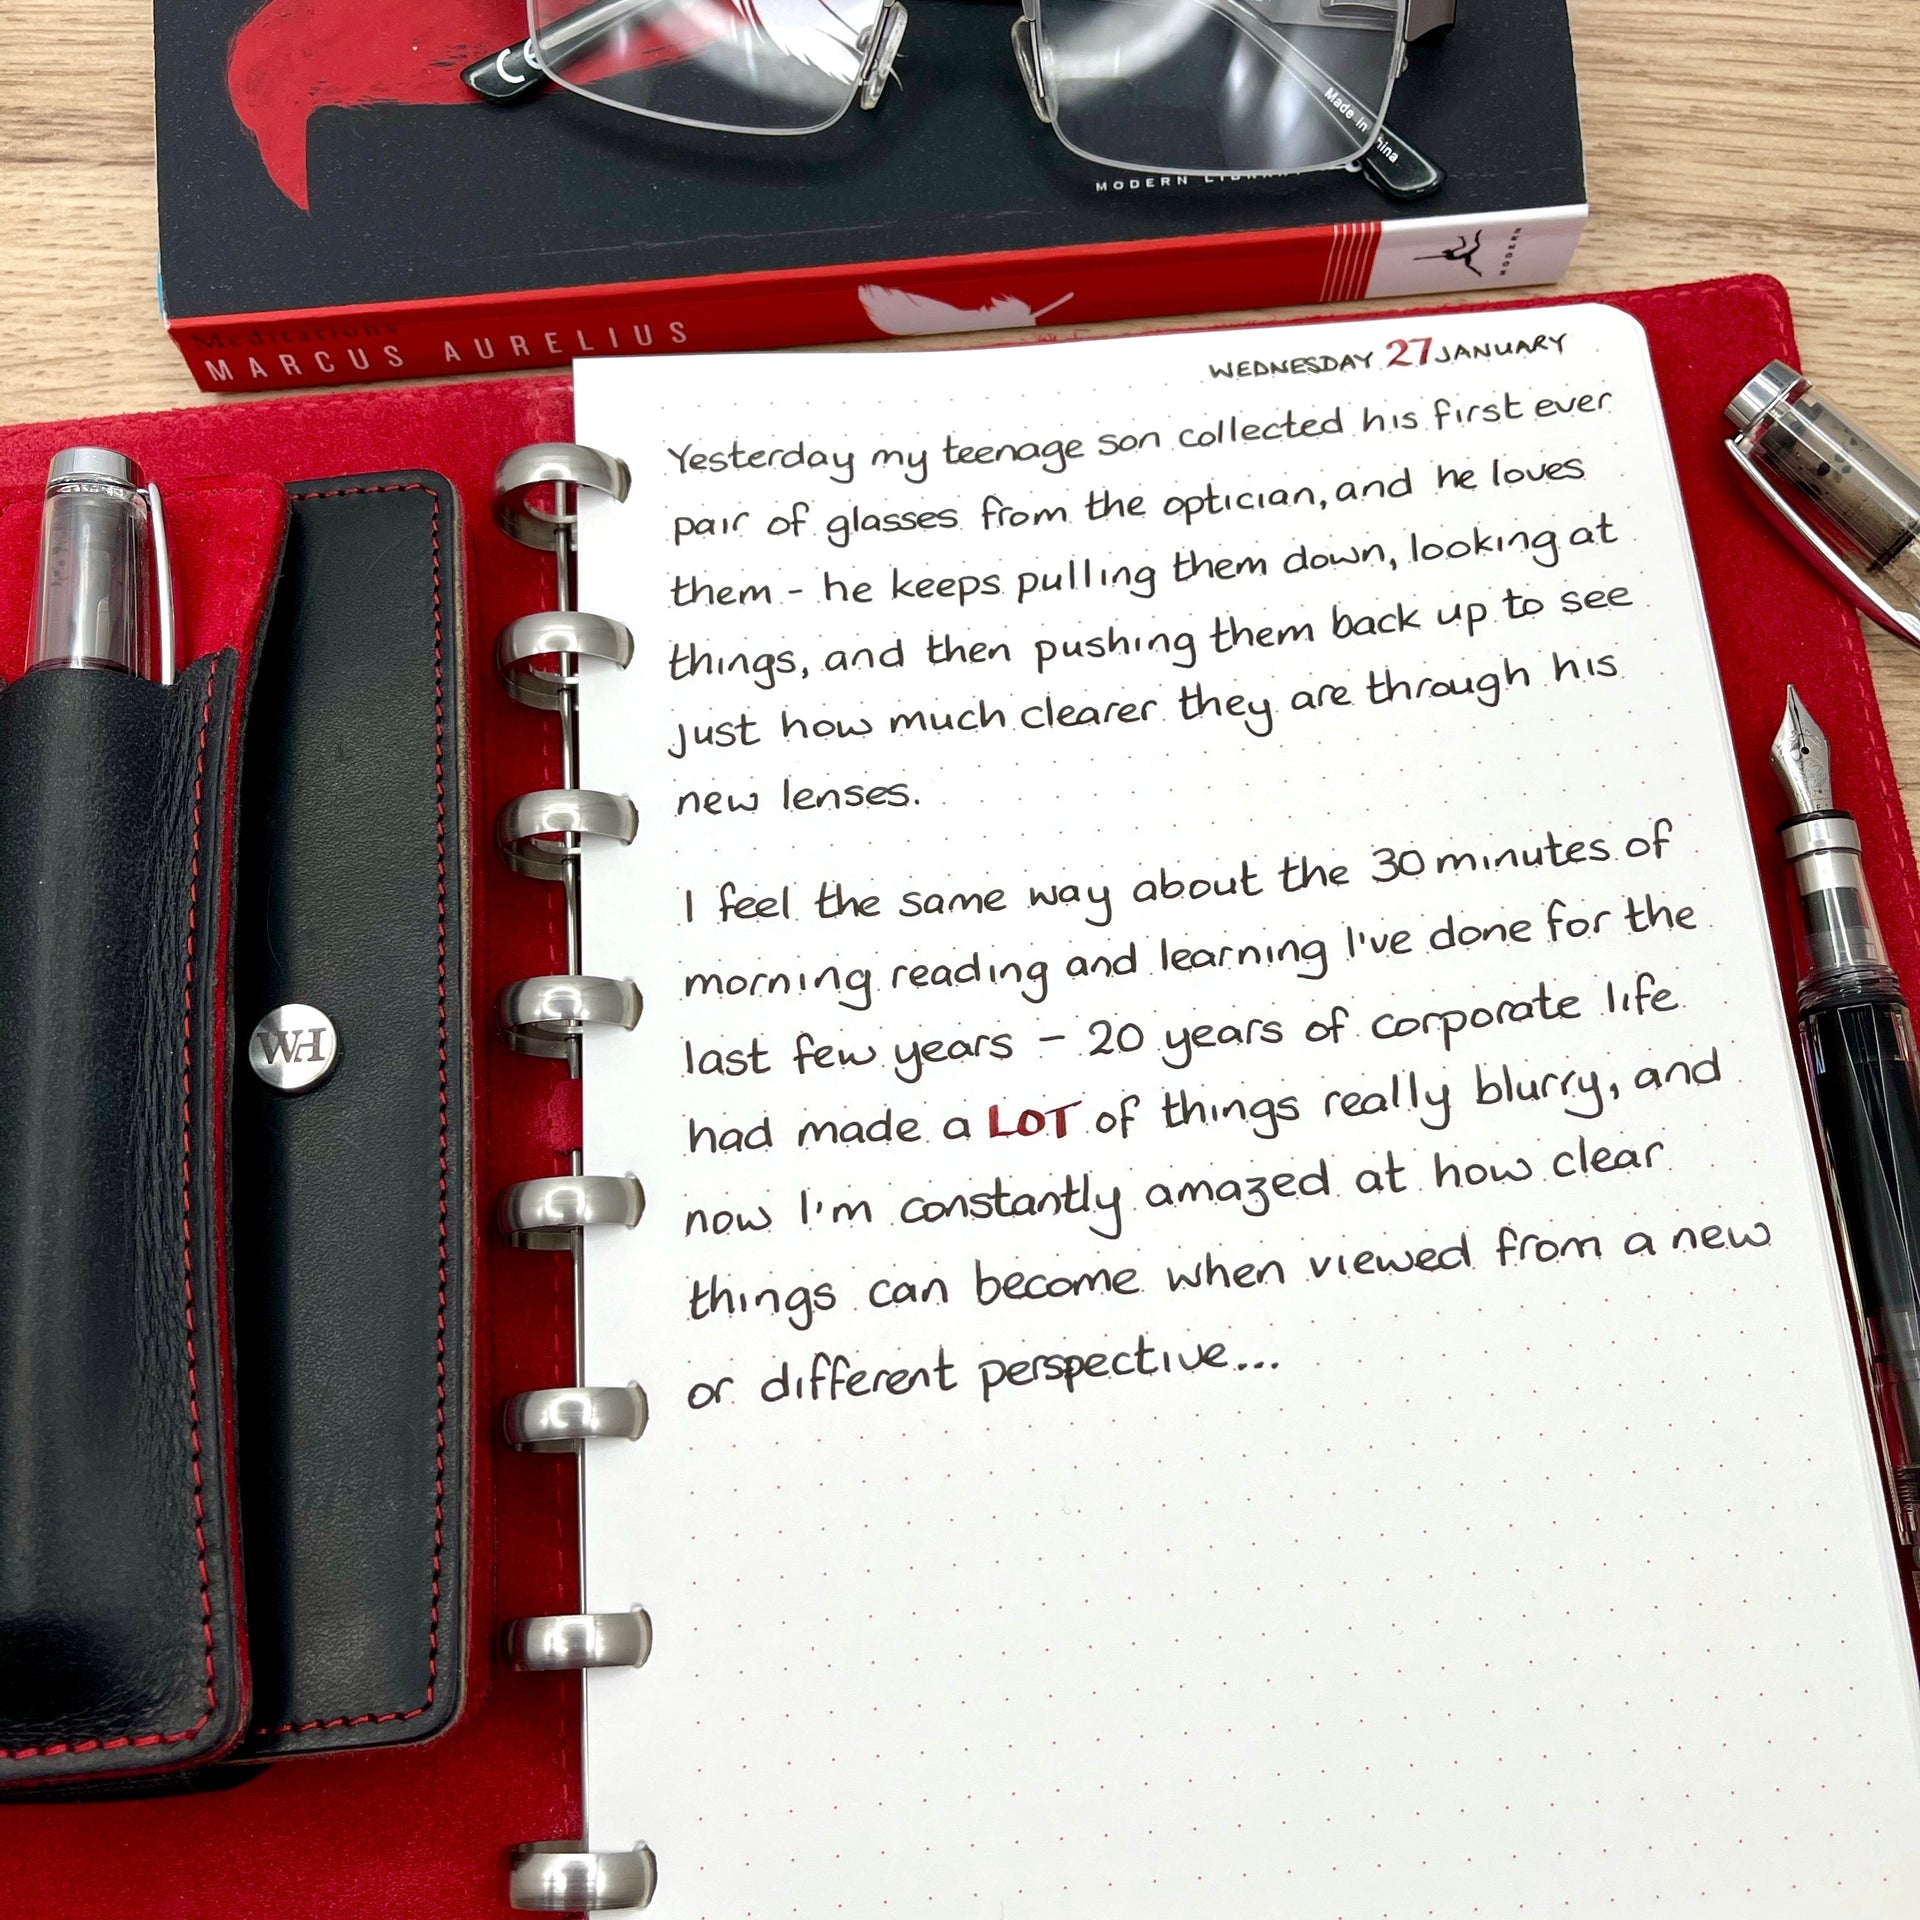 CE
Made in China
MODERN LIBRARY
MODERN
Meditations
MARCUS AURELIUS
WEDNESDAY 27 JANUARY
Yesterday my teenage son collected his first ever
pair of glasses from the optician, and he loves
them - he keeps pulling them down, looking at
things, and then pushing them back up to see
just how much clearer they are through his
new lenses.
I feel the same way about the 30 minutes of
morning reading and learning I've done for the
last few years - 20 years of corporate life
had made a LOT of things really blurry, and
now I'm constantly amazed at how clear
things can become when viewed from a new
or different perspective...
WH